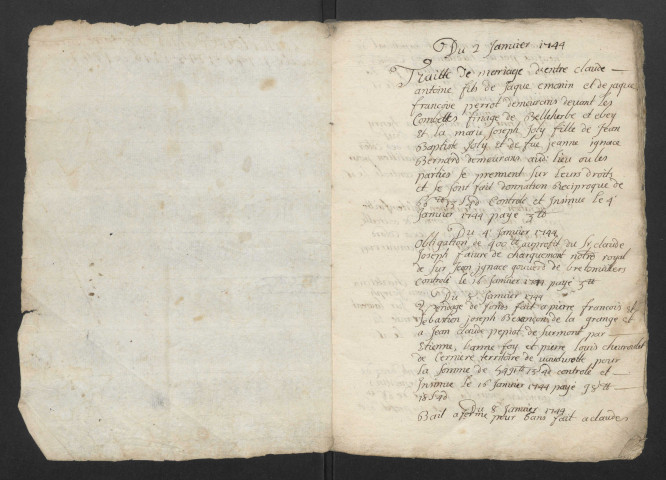 Du 2 Janvier 1744
Traitté de mariage d'entre claude
antoine fils de Jaque emonin et de jaque
françoise perrot demeurans devant les
Combettes finage de Belleherbe
Et la marie Joseph Joly fille de Jean
Baptiste Joly et de fue jeanne ignace
Bernard demeurans aud. lieu ou les
parties se prennent sur leurs droits
et se sont fait donnation Reciproque de
Controlé et Insinué le 4e
Janvier 1744 payé 3 tt
Du 4e Janvier 1744
Obligation de 400 tt au profit du Sr. claude
Joseph faivre de charquemont notre royal
de Sur Jean ignace
Controlé le 16 Janvier 1744 payé 3 tt
Du 5 Janvier 1744
de fonds fait a pierre françois et
Sebastien joseph Besançon de la grange et
a Jean claude pepiot de surmont par
Etienne, hanne foy et pierre louis
de Cerniere territoire de pour
la somme de controlé et
Insinué le 16 Janvier 1744 payé
18 s 4 d
Du 8e Janvier 1744
Bail a ferme pour 6 ans fait a claude